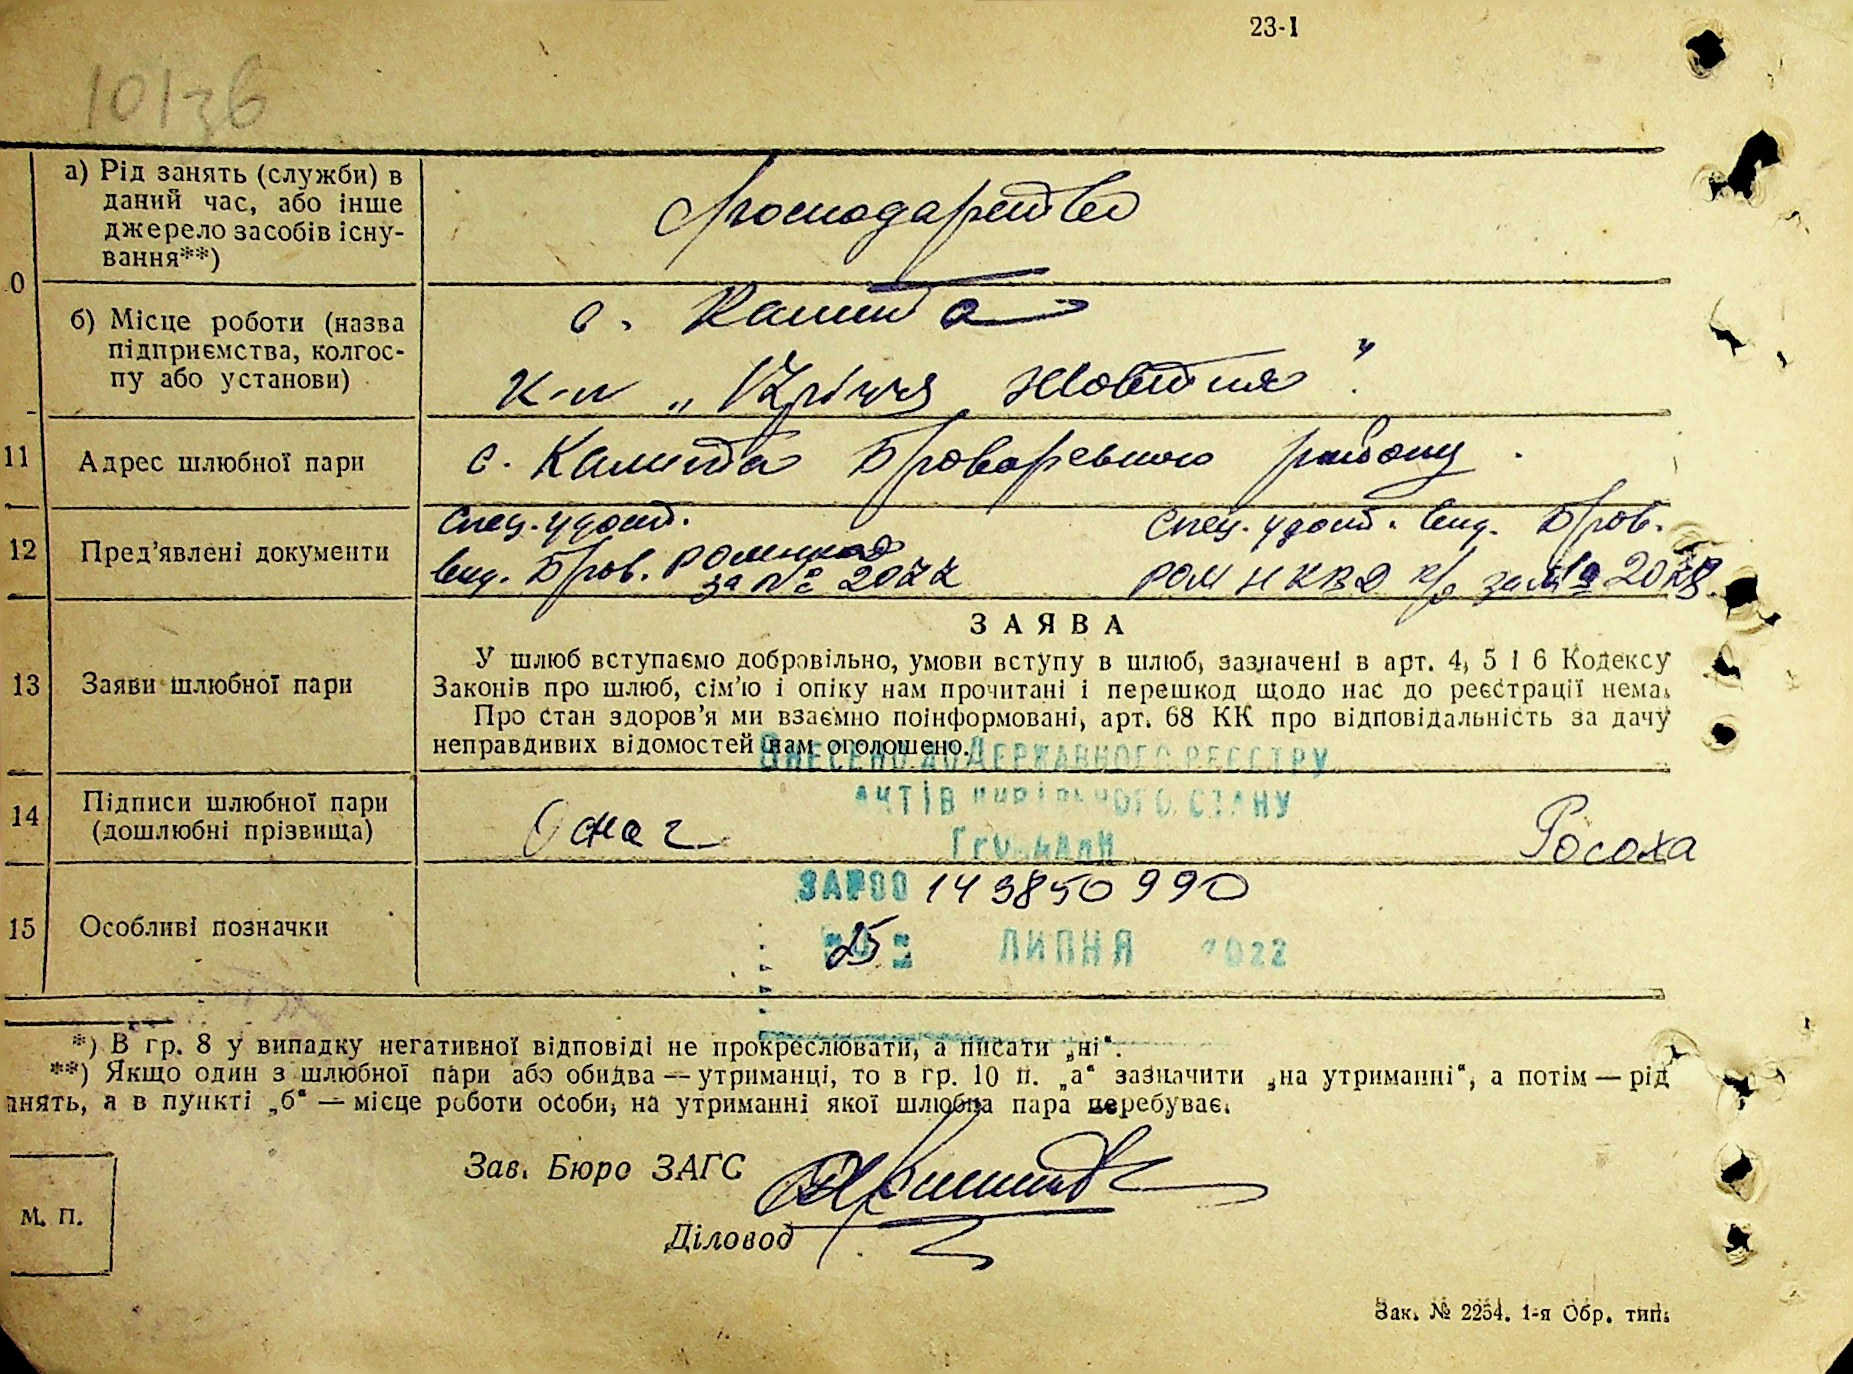 23-1
10136
а) Рід занять (служби) в
даний час, або інше
джерело засобів існу-
вання**)
Господарство
0
б) Місце роботи (назва
підприємства, колгос-
пу або установи)
с. Калита
к-п „12 річчя Жовтня".
11
Адрес шлюбної пари
с. Калита Броварського району.
12
Пред'явлені документи
Спец. удост.
вид. Бров. РОМ НКВД
за № 2077
Спец. удост. вид. Бров.
РОМ НКВД за №
13
Заяви шлюбної пари
ЗАЯВА
У шлюб вступаємо добровільно, умови вступу в шлюб, зазначені в арт. 4, 5 і 6 Кодексу
Законів про шлюб, сім'ю і опіку нам прочитані і перешкод щодо нас до реєстрації нема.
Про стан здоров'я ми взаємно поінформовані, арт. 68 КК про відповідальність за дачу
неправдивих відомостей нам оголошено.
ВНЕСЕНО ДО ДЕРЖАВНОГО РЕЄСТРУ
АКТІВ ЦИВІЛЬНОГО СТАНУ
ГРОМАДЯН
14
Підписи шлюбної пари
(дошлюбні прізвища)
Росоха
ЗА №00 143850990
15
Особливі позначки
25 ЛИПНЯ 2022
*) В гр. 8 у випадку негативної відповіді не прокреслювати, а писати „ні".
**) Якщо один з шлюбної пари або обидва — утриманці, то в гр. 10 п. „а" зазначити „на утриманні", а потім — рід
анять, а в пункті „б" — місце роботи особи, на утриманні якої шлюбна пара перебуває.
Зав. Бюро ЗАГС
М. П.
Діловод
Зак. № 2254. 1-я Обр. тип.